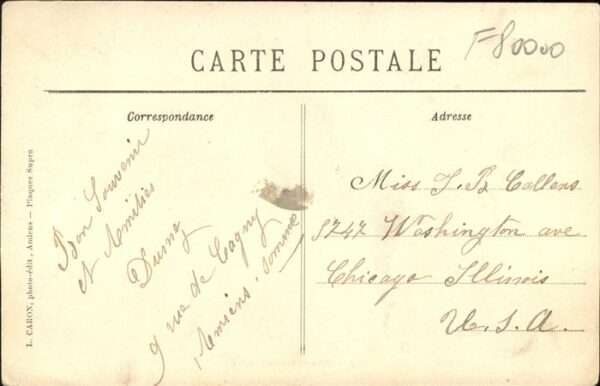 CARTE POSTALE
F80000
Correspondance
Adresse
Bon Souvenir
et Amitiés
9 rue de Cagny
Amiens. Somme
Miss J. B. Callens
5747 Washington ave
Chicago Illinois
U. S. A.
L. CARON, photo-édit, Amiens — Plaques Supra